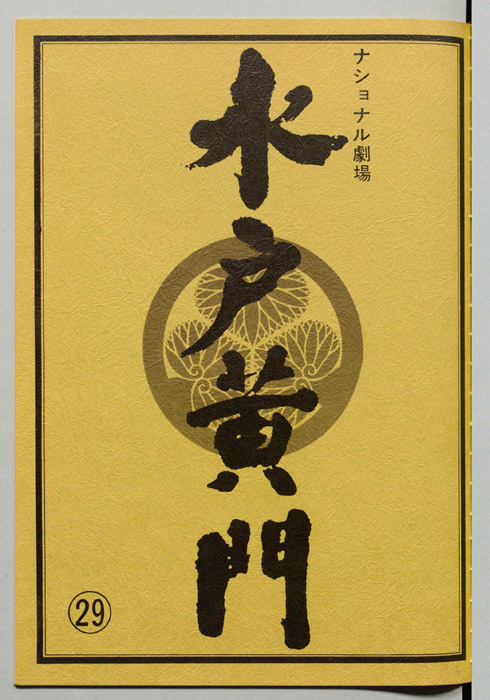 ナショナル劇場
水戸黄門
㉙